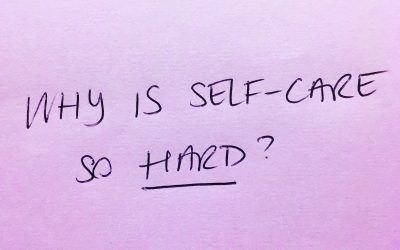 WHY IS SELF-CARE
SO HARD?